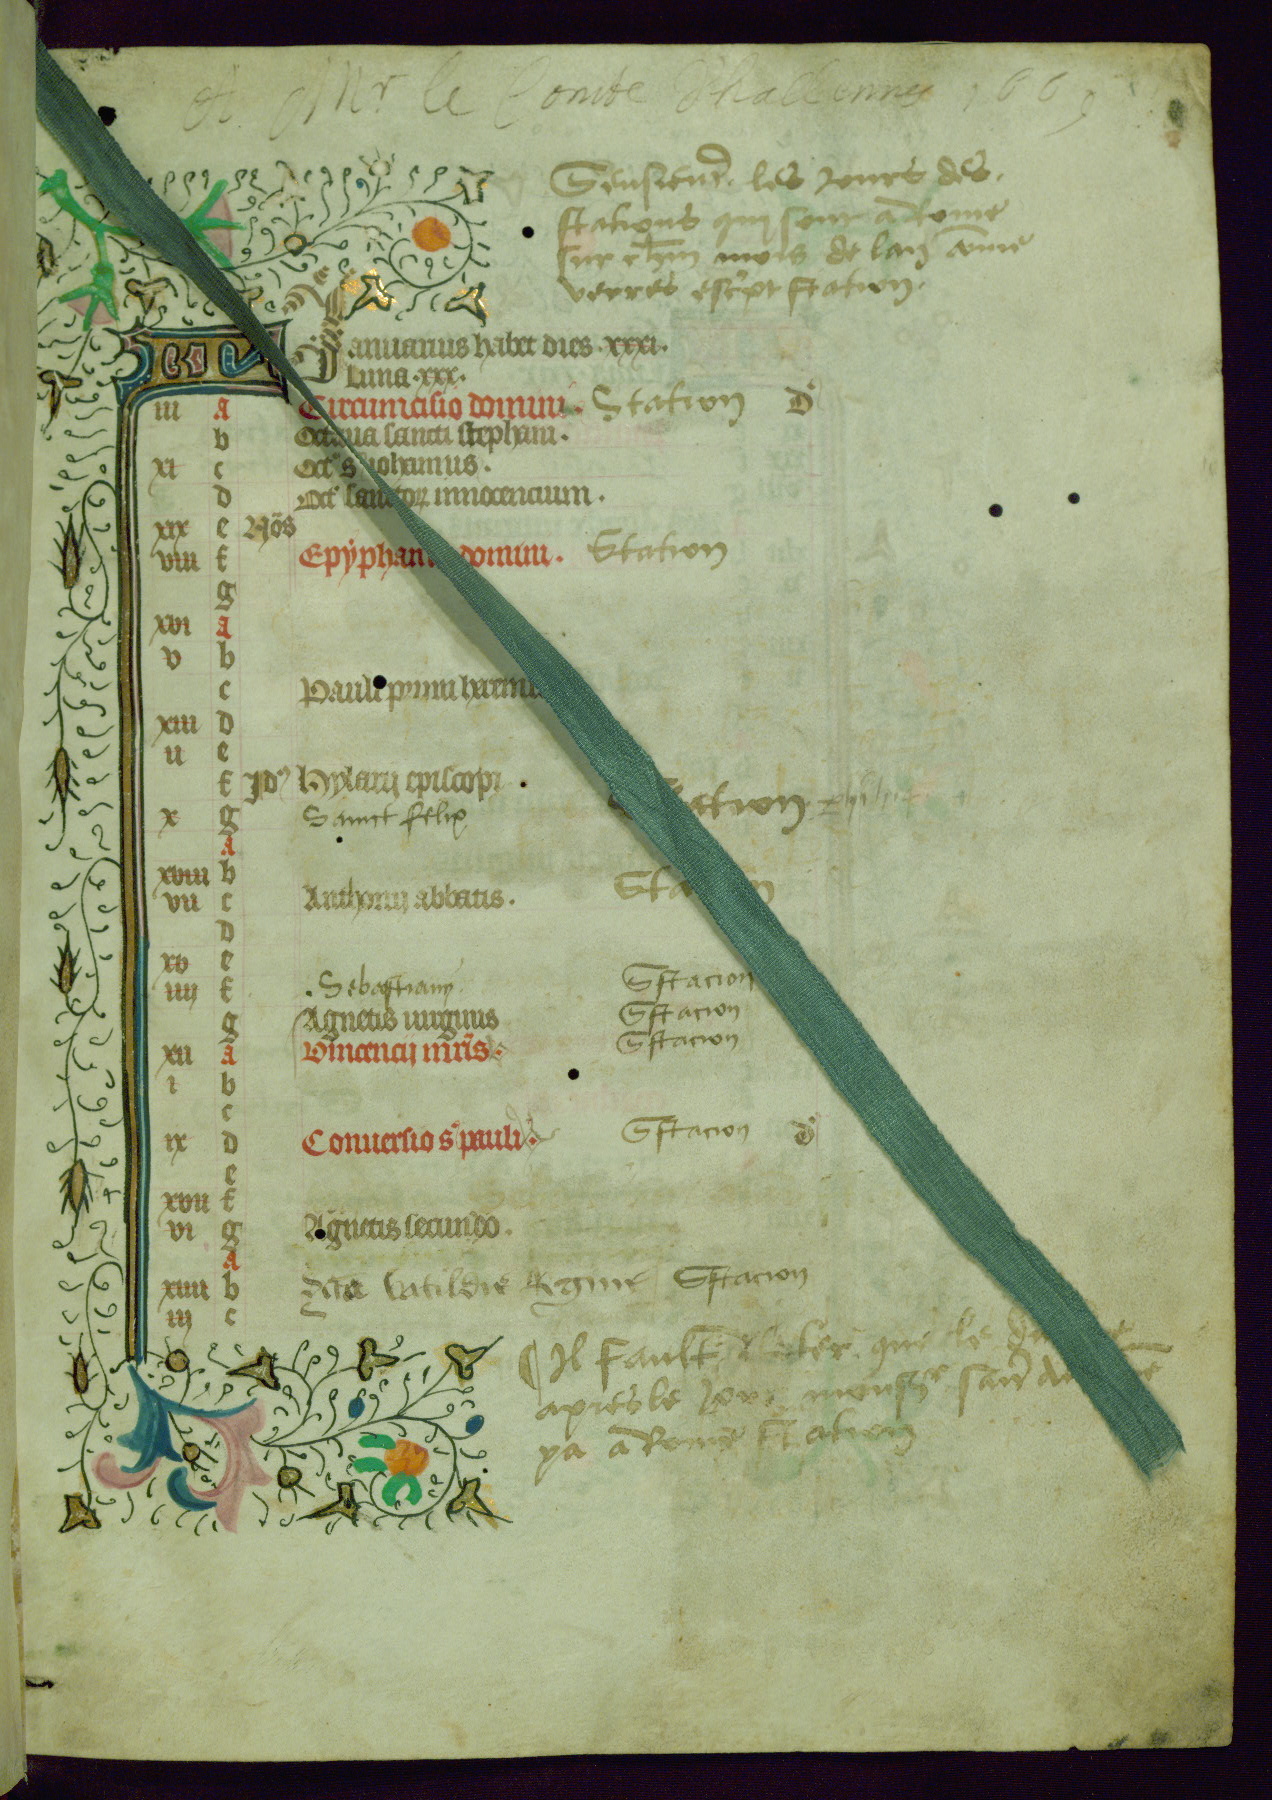 A Mr le Comte
Sensieut les Jours des
stations qui sont a Rome
sur mois de lan
verres escpt station.
KL Januarius habet dies .xxxi.
Luna .xxx.
iii a Circumcisio domini. Station D
b Octaua sancti stephani.
xi c Oct s iohannis.
d Oct sanctor innocencium.
xix e Nos
viii f Epyphan domini. Station
g
xvi a
v b
c Pauli primi heremi
xiii d
ii e
f Id Hylarij episcopi
x g Sainct felix ation
A
xviii b
vii c Anthonij abbatis. Sta n
d
xv e
iiij f .Sebastiani Sstacion
g Agnetis uirginis Sstacion
xii a Vincencij mris. Sstacion
i b
c
ix d Conuersio s pauli. Sstacion D
e
xvii f
vi g Agnetis secundo.
A
xiiii b batildie Regine Sstacion
iij c
Il fault que le
apres le Jour
ya a Rome station